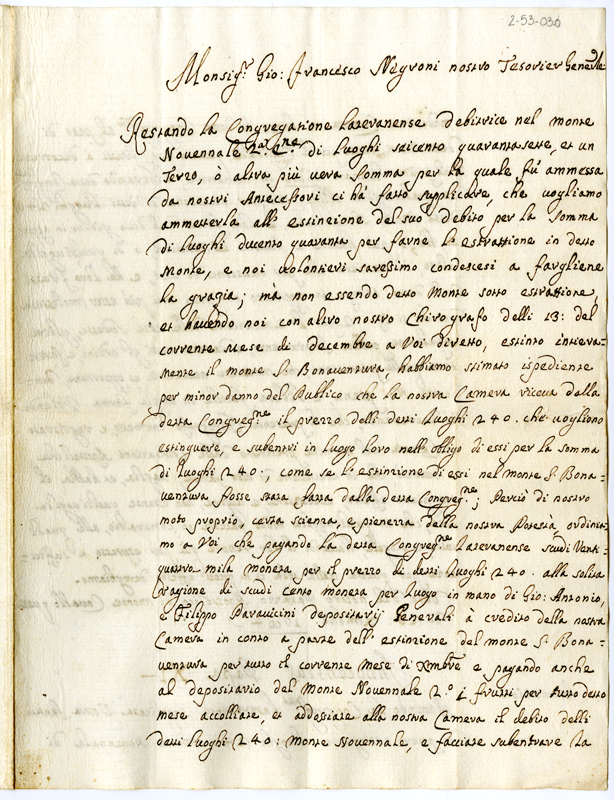 2-53-030
Monsig.r Gio: Francesco Negroni nostro Tesorier Gener.le
Restando la Congregatione Lateranense debitrice nel monte
Novennale di Luoghi seicento quarantasette, et un
Terzo, ò altra più vera somma per la quale fù ammessa
da nostri Antecessori ci hà fatto supplicare, che vogliamo
ammetterla all'estinzione del suo debito per la somma
di Luoghi ducento quaranta per farne l'estrattione in detto
Monte, e noi volontieri saressimo condescesi a fargliene
la grazia; mà non essendo detto Monte sotto estrattione,
et havendo noi con altro nostro Chirografo delli 13: del
corrente mese di decembre a Voi diretto, estinto intiera-
mente il monte S. Bonaventura, habbiamo stimato ispediente
per minor danno del Publico che la nostra Camera riceva dalla
detta Congreg.ne il prezzo delli detti Luoghi 240. che vogliono
estinguere, e subentri in Luogo loro nell'obligo di essi per la somma
di Luoghi 240., come se l'estinzione di essi nel monte S. Bona=
ventura fosse stata fatta dalla detta Congreg.ne; Perciò di nostro
moto proprio, certa scienza, e pienezza della nostra Potestà, ordinia-
mo a Voi, che pagando la detta Congreg.ne Lateranense scudi Venti-
quattro mila moneta per il prezzo di detti Luoghi 240. alla solita
ragione di scudi cento moneta per Luogo in mano di Gio: Antonio,
e Filippo Paravicini depositarij Generali à credito della nostra
Camera in conto a parte dell'estinzione del monte S. Bona=
ventura per tutto il corrente mese di Xmbre e pagando anche
al depositario del Monte Novennale 2.o i frutti per tutto detto
mese accolliate, et addossiate alla nostra Camera il debito delli
detti Luoghi 240: monte Novennale, e facciate subentrare la